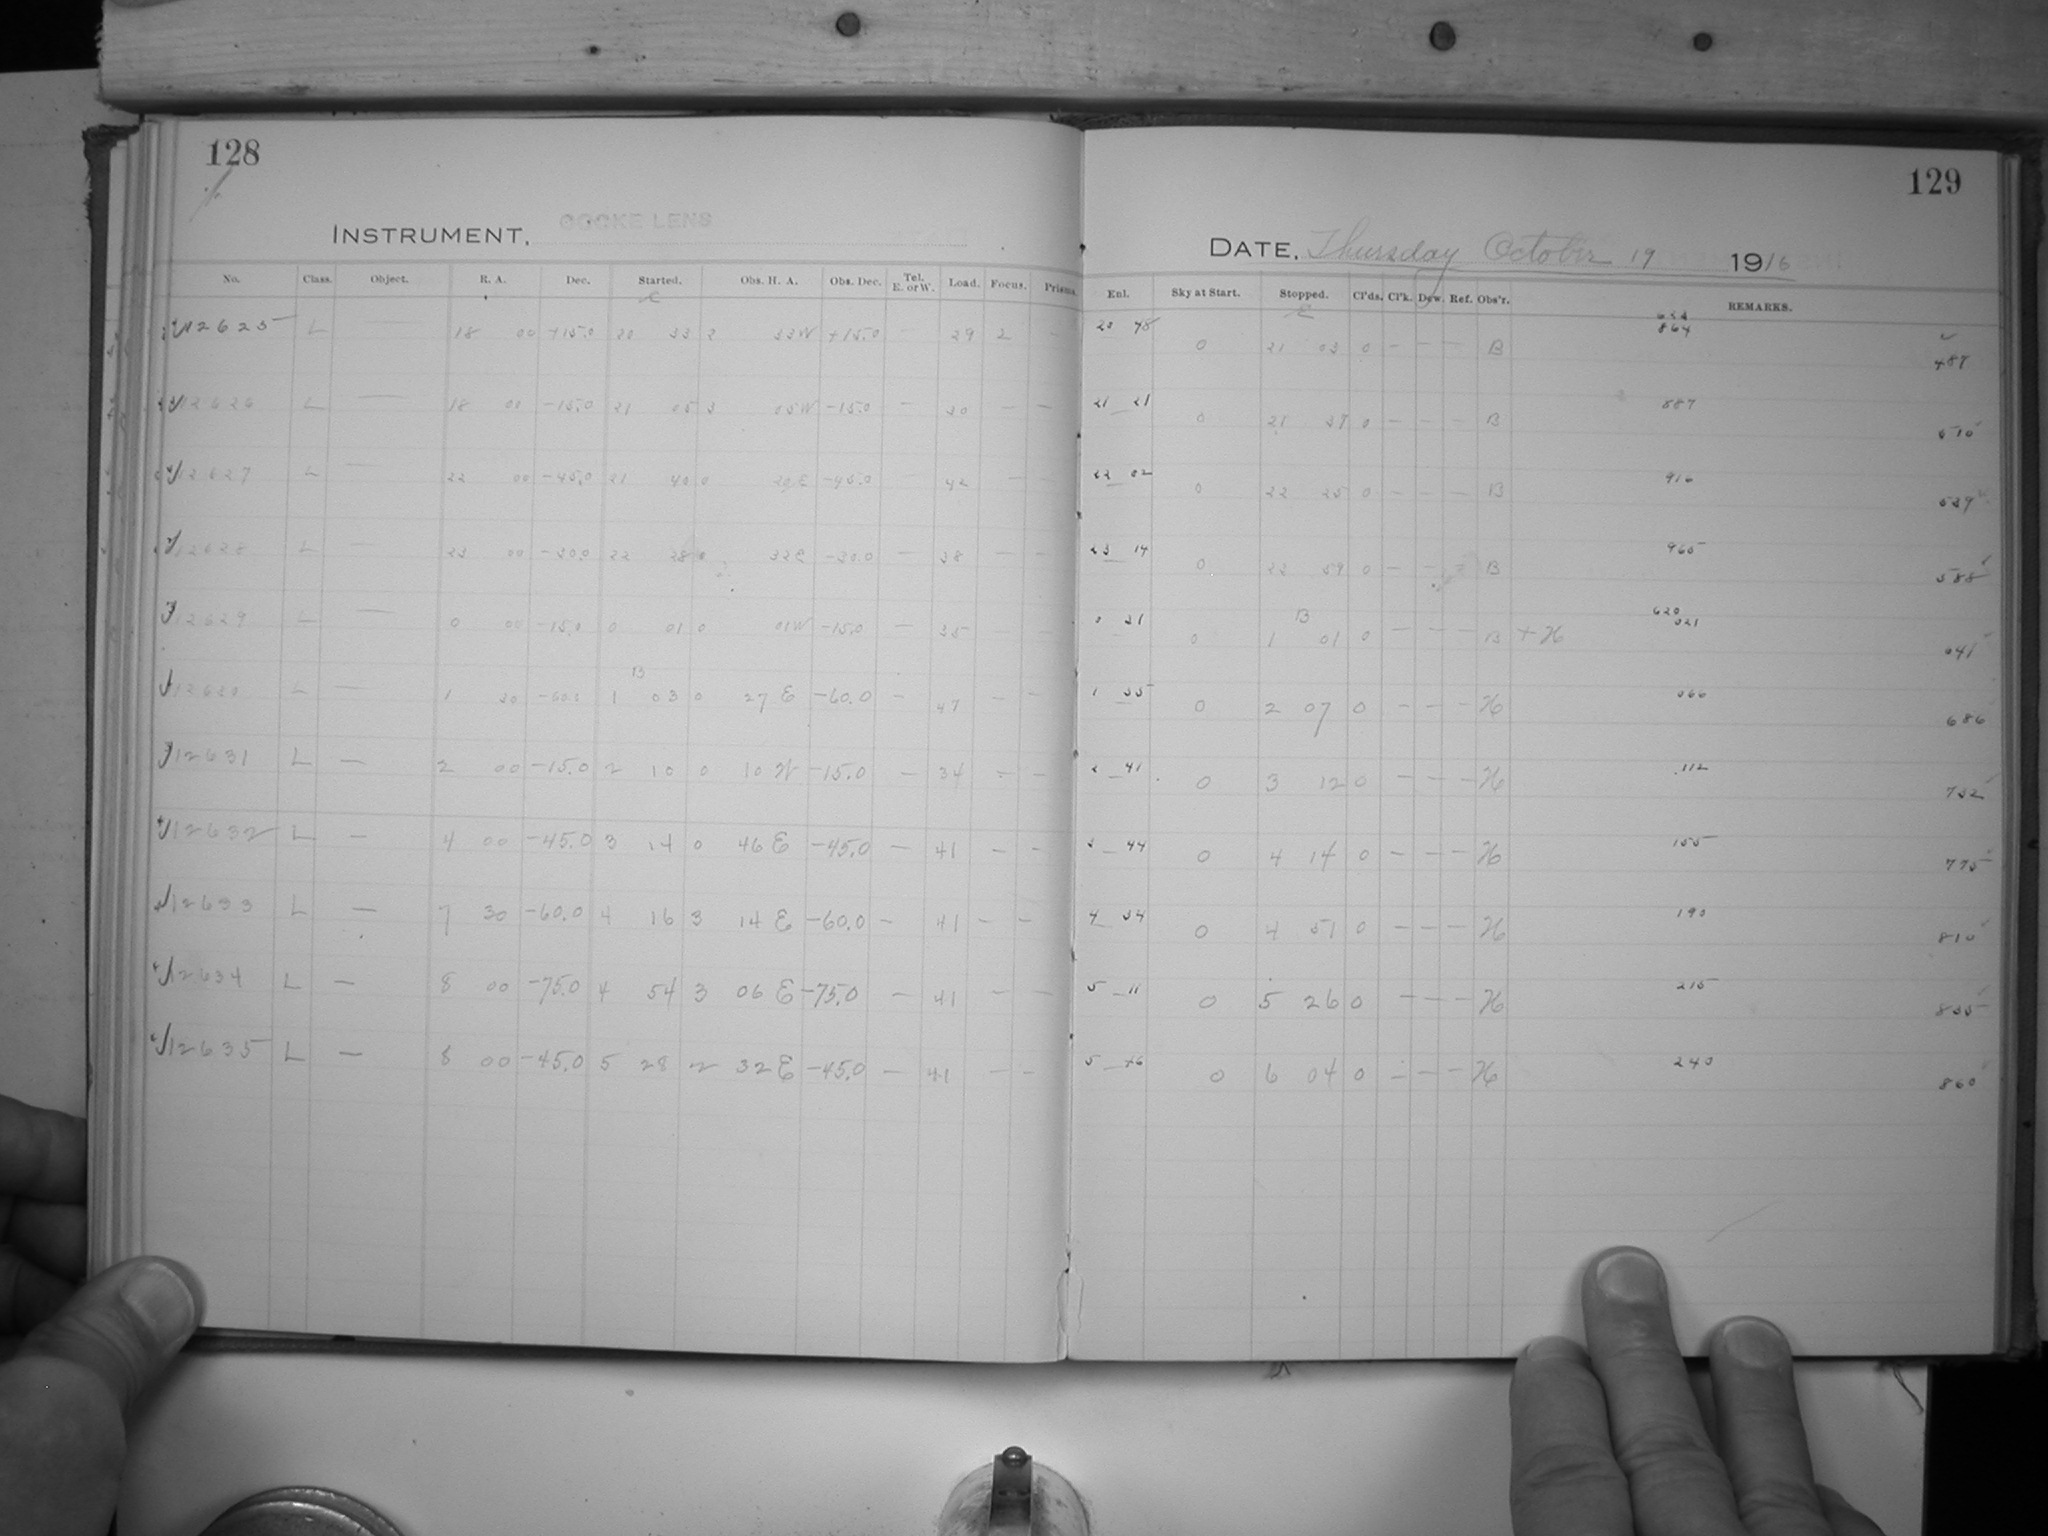 128
129
INSTRUMENT, COOKE LENS
DATE, Thursday October 19 1916
No. Class. Object. R. A. Dec. Started. Obs. H. A. Obs. Dec. Tel. E. or W. Load. Focus. Prisms. Enl. Sky at Start. Stopped. Cl'ds. Cl'k. Dew. Ref. Obs'r. REMARKS.
12625 L — 18 00 +15.0 20 33 2 33W +15.0 29 2 — 20 48 0 21 03 0 — — — B 864 487
12626 L — 18 00 -15.0 21 05 3 05W -15.0 — 30 — — 21 21 0 21 37 0 — — — B 887 510
12627 L — 22 00 -45.0 21 40 0 20E -45.0 — 42 — — 22 02 0 22 25 0 — — — B 916 539
12628 L — 23 00 -30.0 22 28 0 32E -30.0 — 38 — — 23 14 0 22 59 0 — — B 965 588
12629 L — 0 00 -15.0 0 01 0 01W -15.0 — 35 — 0 31 0 1 B 01 0 — — — B + H 620 021 641
12630 L — 1 30 -60.0 1 B 03 0 27 E -60.0 — 47 — — 1 35 0 2 07 0 — — — H 066 686
12631 L — 2 00 -15.0 2 10 0 10 W -15.0 — 34 — — 2 41 0 3 12 0 — — — H 112 732
12632 L — 4 00 -45.0 3 14 0 46 E -45.0 — 41 — — 3 44 0 4 14 0 — — — H 155 775
12633 L — 7 30 -60.0 4 16 3 14 E -60.0 — 41 — — 4 34 0 4 51 0 — — — H 190 810
12634 L — 8 00 -75.0 4 54 3 06 E -75.0 — 41 — — 5 11 0 5 26 0 — — — H 215 835
12635 L — 8 00 -45.0 5 28 2 32 E -45.0 — 41 — — 5 46 0 6 04 0 — — — H 240 860